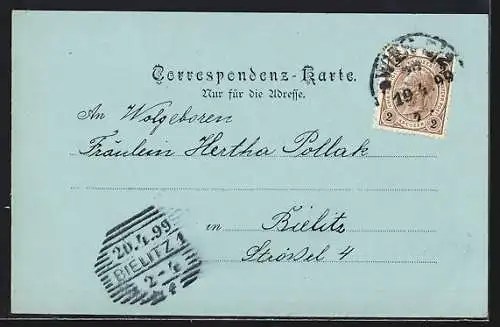 Correspondenz-Karte.
Nur für die Adresse.
WIEN
19.4.99
7
2 2
An Wolgeboren
Fräulein Hertha Pollak
in Bielitz
Strößel 4
20.4.99
BIELITZ 1
2-4
f